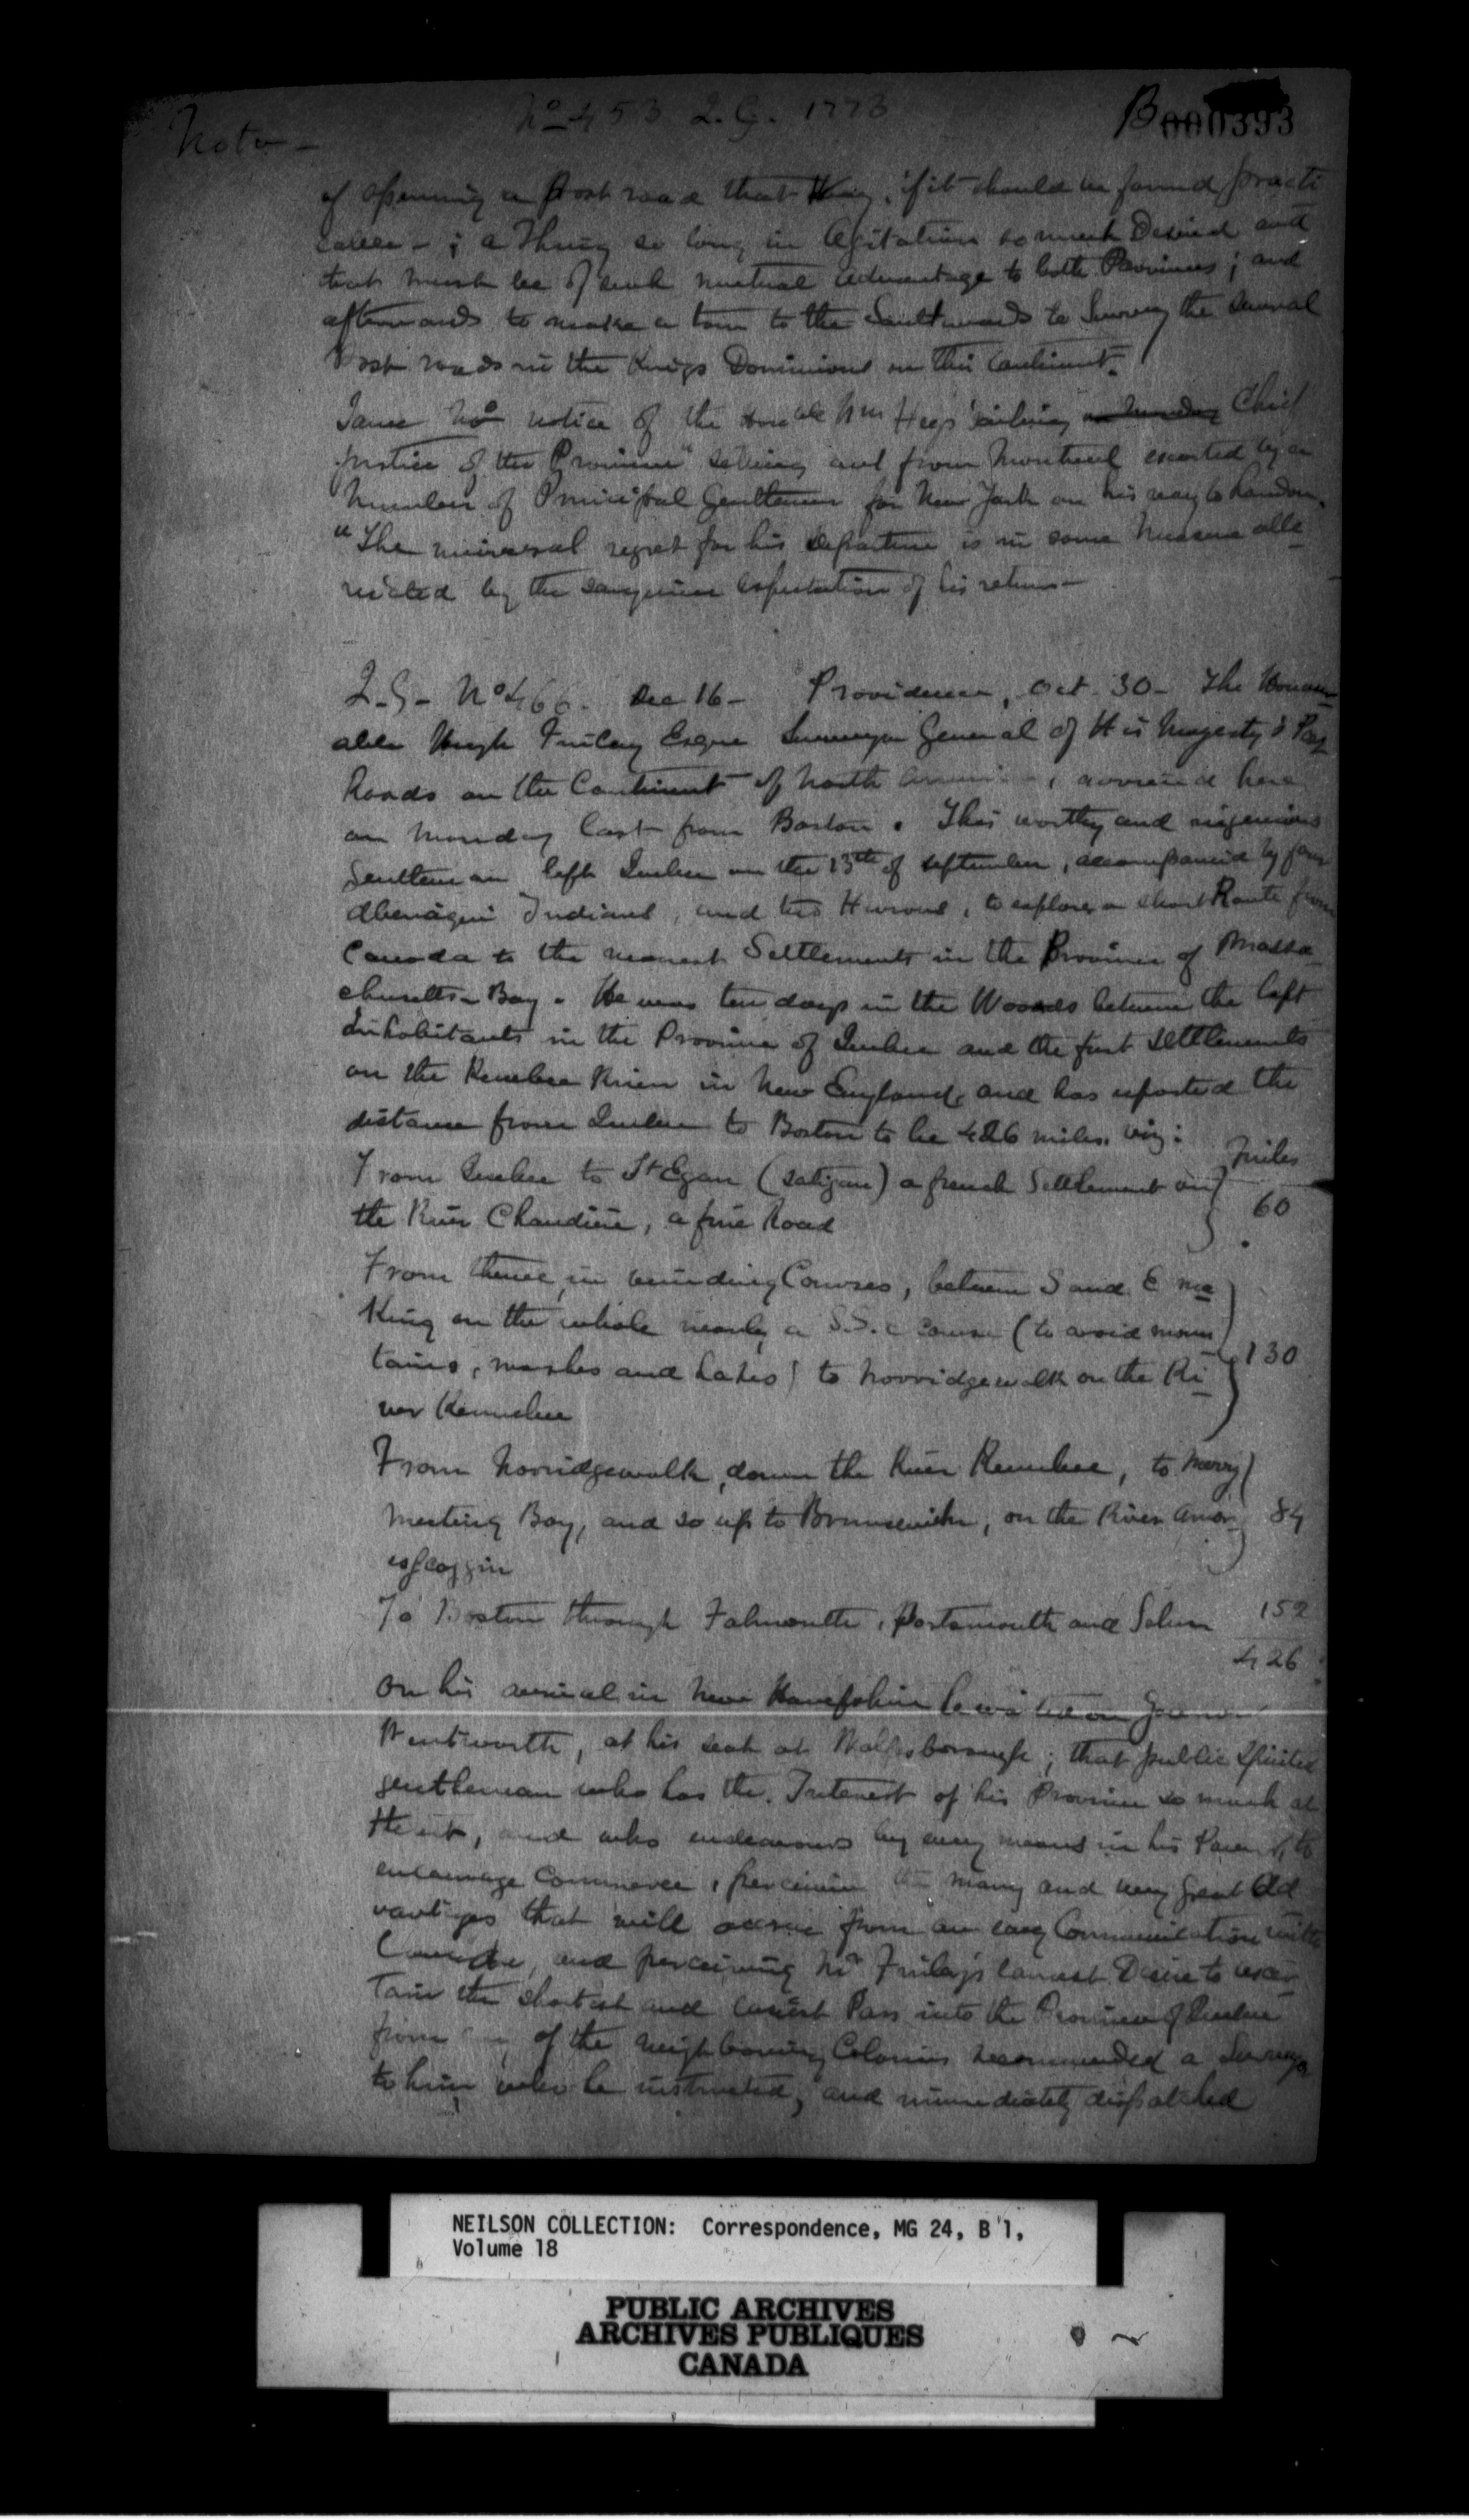 Note - No 453 Q.G. 1773 B 000393
of opening a Post road that Way, if it should be found practi
cable - ; a Thing so long in Agitation so much Desired and
that must be of such mutual advantage to both Provinces; and
afterwards to make a tour to the Southwards to Survey the several
Post roads in the Kings Dominions on this Continent.
Same No notice of the Honble Wm Hey's Chief
Justice of the Province" setting out from Montreal escorted by a
Number of Principal Gentlemen for New York on his way to London.
"The universal regret for his departure is in some Measure alle
viated by the sanguine expectation of his return -
Q.G - No 466. Dec 16 - Providence, Oct. 30 - The Honour
able Hugh Finlay Esqre Surveyor General of His Majesty's Post
Roads on the Continent of North America, arrived here
on Monday last from Boston. This worthy and ingenious
Gentleman left Quebec on the 13th of September, accompanied by four
Abenaqui Indians, and two Hurons, to explore a short Route from
Canada to the nearest Settlements in the Province of Massa
chusetts-Bay. He was ten days in the Woods between the last
Inhabitants in the Province of Quebec and the first Settlements
on the Kenebec River in New England, and has reported the
distance from Quebec to Boston to be 426 miles. viz:
miles
From Quebec to St Egan (Satigan) a french Settlement on
the River Chaudiere, a fine Road } 60
From thence, in winding Courses, between S and E ma
king on the whole nearly a S.S.E course (to avoid moun
tains, marshes and Lakes) to Norridgewalk on the Ri } 130
ver Kennebec
From Norridgewalk, down the River Kennebec, to Merry
Meeting Bay, and so up to Brunswick, on the River Amor } 84
esscoggin
To Boston through Falmouth, Portsmouth and Salem 152
426
On his arrival in New Hampshire he waited on Governor
Wentworth, at his seat at Wolfsborough; that public spirited
gentleman who has the Interest of his Province so much at
Heart, and who endeavours by every means in his Power, to
encourage Commerce, perceiving the many and very great Ad
vantages that will accrue from an easy Communication with
Canada, and perceiving Mr Finlay's earnest Desire to ascer
tain the shortest and easiest Pass into the Province of Quebec
from any of the neighbouring Colonies recommended a Surveyor
to him, who he instructed, and immediately dispatched
NEILSON COLLECTION: Correspondence, MG 24, B 1,
Volume 18
PUBLIC ARCHIVES
ARCHIVES PUBLIQUES
CANADA